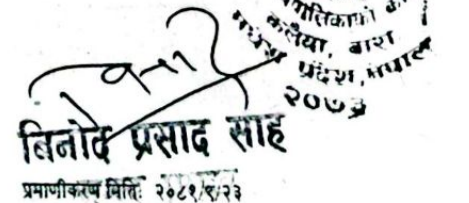 गरपालिकाको का
कलैया, बारा
मधेश प्रदेश, नेपाल
२०७३
बिनोद प्रसाद साह
प्रमाणीकरण मितिः २०८१/९/२३